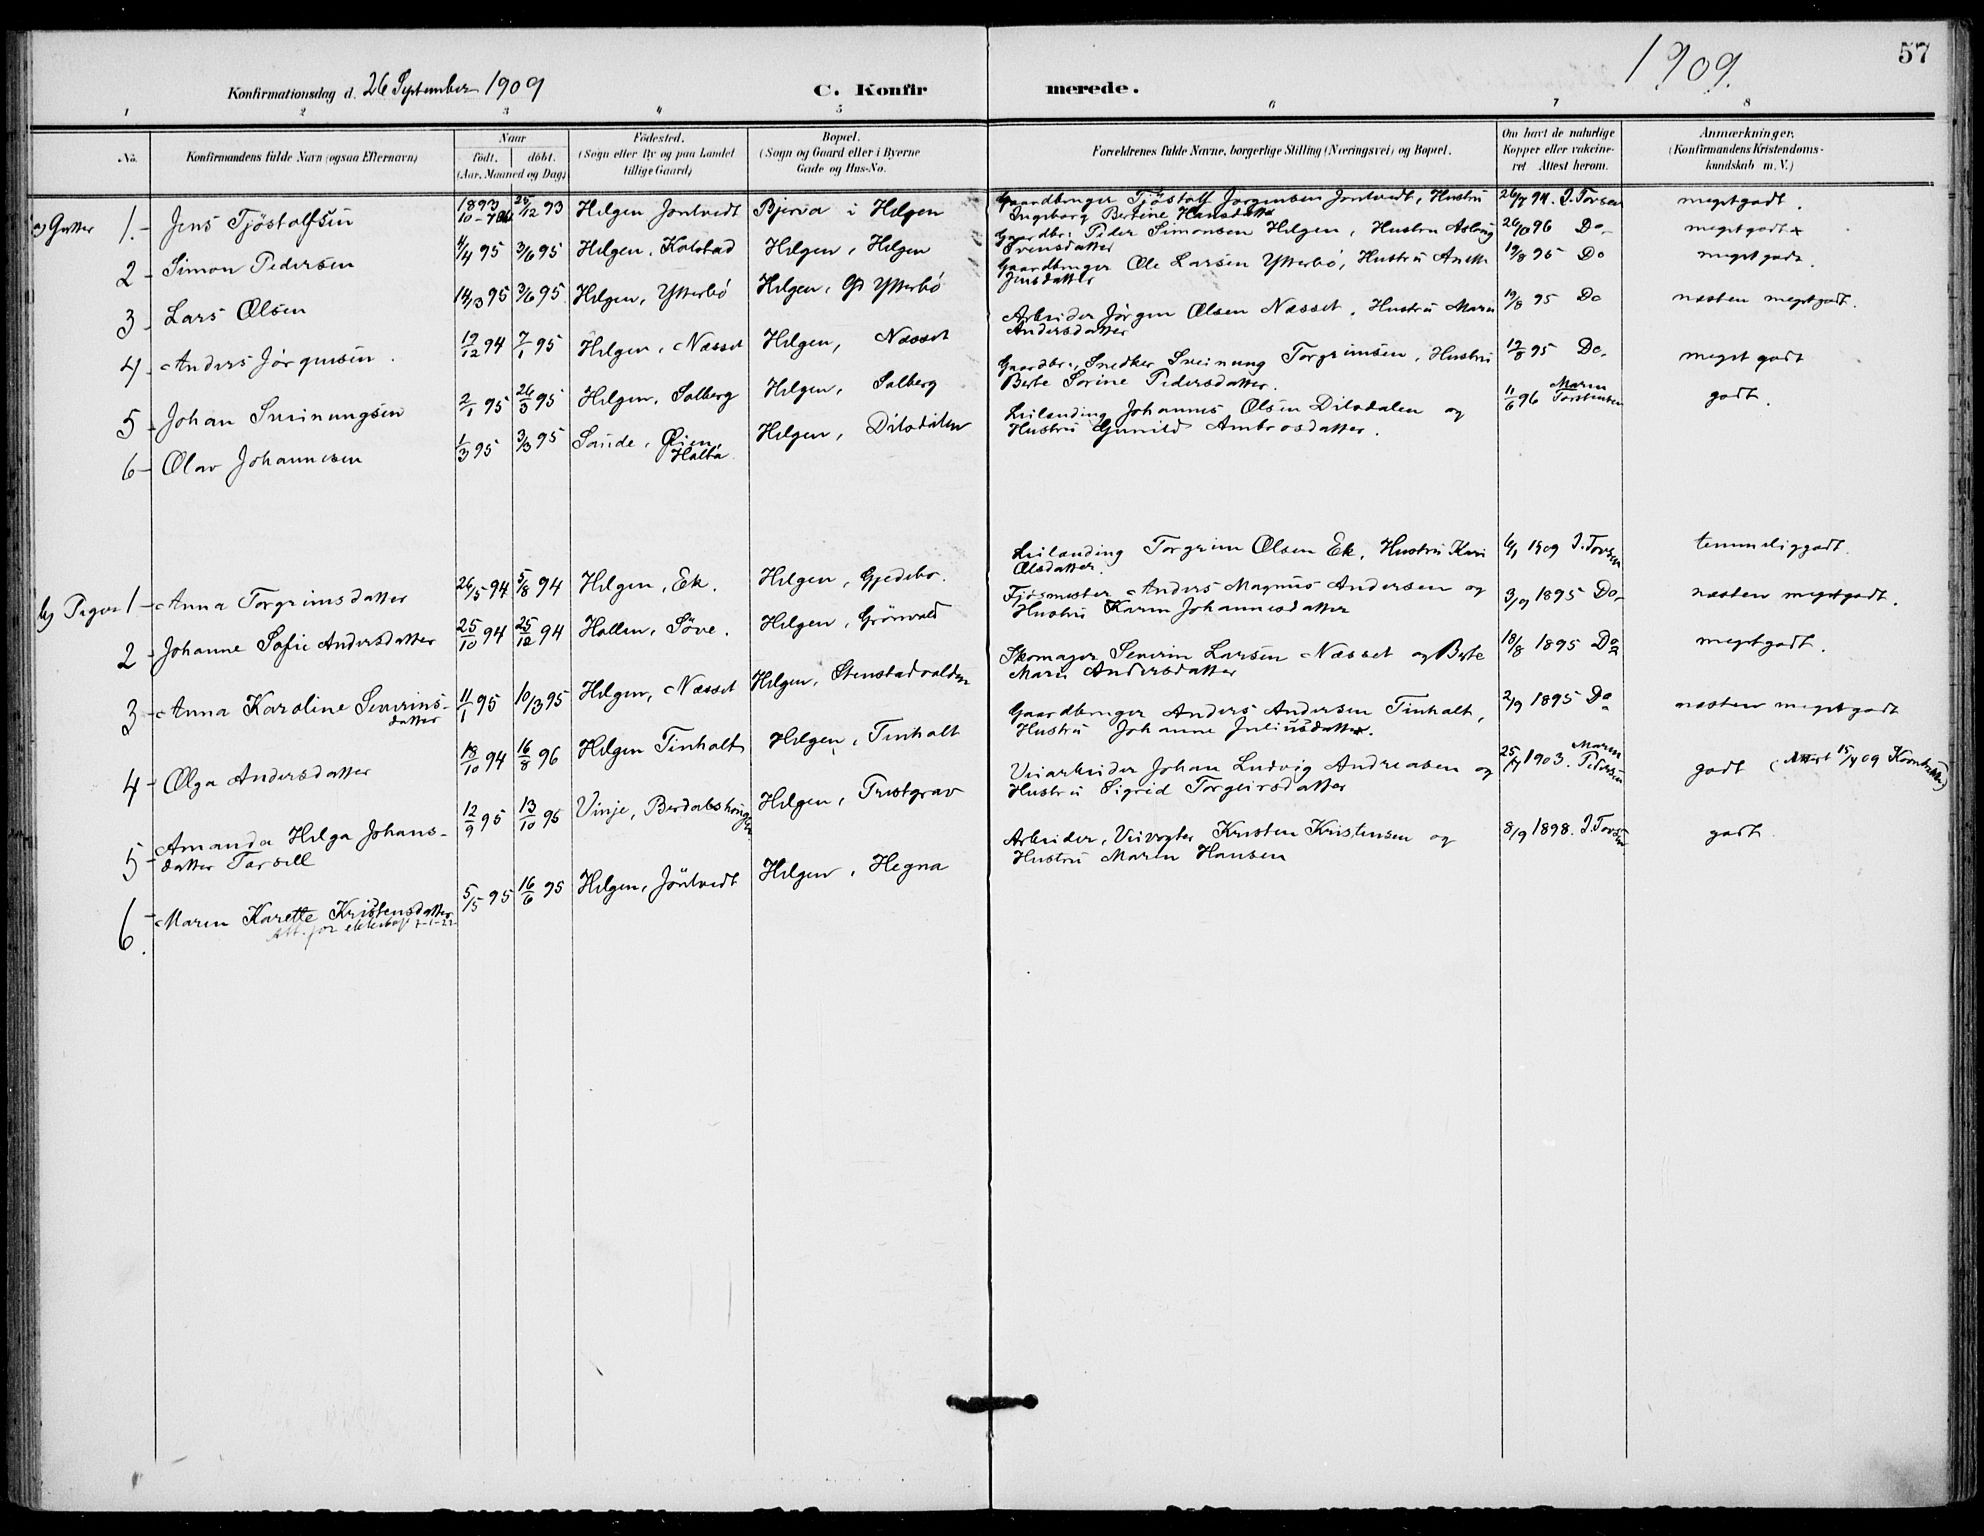 57
1909.
Konfirmationsdag d. 26 September 1909
C. Konfirmerede.
1 2 3 4 5 6 7 8
No.
Konfirmandens fulde Navn (ogsaa Efternavn)
Naar
født. døbt.
(Aar, Maaned og Dag)
Fødested.
(Sogn eller By og paa Landet
tillige Gaard)
Bopæl.
(Sogn og Gaard eller i Byerne
Gade og Hus-No.
Forældrenes fulde Navne, borgerlige Stilling (Næringsvei) og Bopæl.
Om havt de naturlige
Kopper eller vakcine-
ret Attest herom.
Anmærkninger.
(Konfirmandens Kristendoms-
kundskab m. V.)
a) Gutter 1. Jens Tjöstolfsen 1893 Helgen Jontvedt Bjerva i Helgen
Gaardbruger Tjöstolf Jørgensen Jontvedt, Hustru
Ingeborg Bertine Hansdatter
J. Torsen megetgodt.
2 Simon Pedersen 4/4 95 3/6 95 Helgen, Kolstad Helgen, Helgen
Gaardbr: Peder Simonsen Helgen, Hustru Aslaug
Svensdatter
26/10 96 Do megetgodt
3 Lars Olsen 14/3 95 3/6 95 Helgen, Ytterbö Helgen, Gd Ytterbö
Gaardbruger Ole Larsen Ytterbö, Hustru Aneth
Jensdatter
19/8 95 Do megetgodt.
4 Anders Jörgensen. 12/12 94 7/1 95 Helgen, Næsset Helgen, Næsset
Arbeider Jörgen Olsen Næsset, Hustru Maren
Andersdatter
19/8 95 Do næsten megetgodt.
5 Johan Sveinungsen 2/1 95 26/3 95 Helgen, Solberg Helgen, Solberg
Gaardbr., Snedker Sveinung Torgrimsen, Hustru
Berte Sorine Pedersdatter.
19/8 95 Do. meget godt
6 Olav Johannesen 1/3 95 3/3 95 Saude, Öien, Helgen, Dilsdalen
Holta
Leilending Johannes Olsen Dilsdalen og
Hustru Gunild Ambrosdatter.
11/6 96 Maren
Torstensen godt.
b) Piger 1 Anna Torgrimsdatter 26/5 94 5/8 94 Helgen, Ek. Helgen, Gjedebo.
Leilending Torgrim Olsen Ek, Hustru Kari
Olsdatter.
1909 J. Torsen temmeliggodt.
2 Johanne Sofie Andersdatter 25/10 94 25/12 94 Hollen, Söve. Helgen, Grönvold
Fjösmester Anders Magnus Andersen og
Hustru Karen Johannesdatter
3/9 1895 Do næsten megetgodt.
3 Anna Karoline Severins-
datter 11/1 95 10/3 95 Helgen, Næsset Helgen, Stenstadvalden
Skomager Severin Larsen Næsset og Berte
Maren Andersdatter
18/8 1895 Do megetgodt.
4 Olga Andersdatter 18/10 94 16/8 96 Helgen Tinholt Helgen, Tinholt
Gaardbruger Anders Andersen Tinholt,
Hustru Johanne Juliusdatter.
2/9 1895 Do næsten megetgodt
5 Amanda Helga Johans-
datter Tarsell 12/9 95 13/10 95 Vinje, Helgen, Tristgrav
Veiarbeider Johan Ludvig Andreasen og
Hustru Sigrid Torgeirsdatter
1903. Maren
Pedersen godt (Attest 15/4 09
6. Maren Karette Kristensdatter 5/5 95 16/6 95 Helgen, Jöntvedt Helgen, Hegna
Att. for
Arbeider, Veivogter Kristen Kristensen og
Hustru Maren Hansen
8/9 1898. J. Torsen godt.